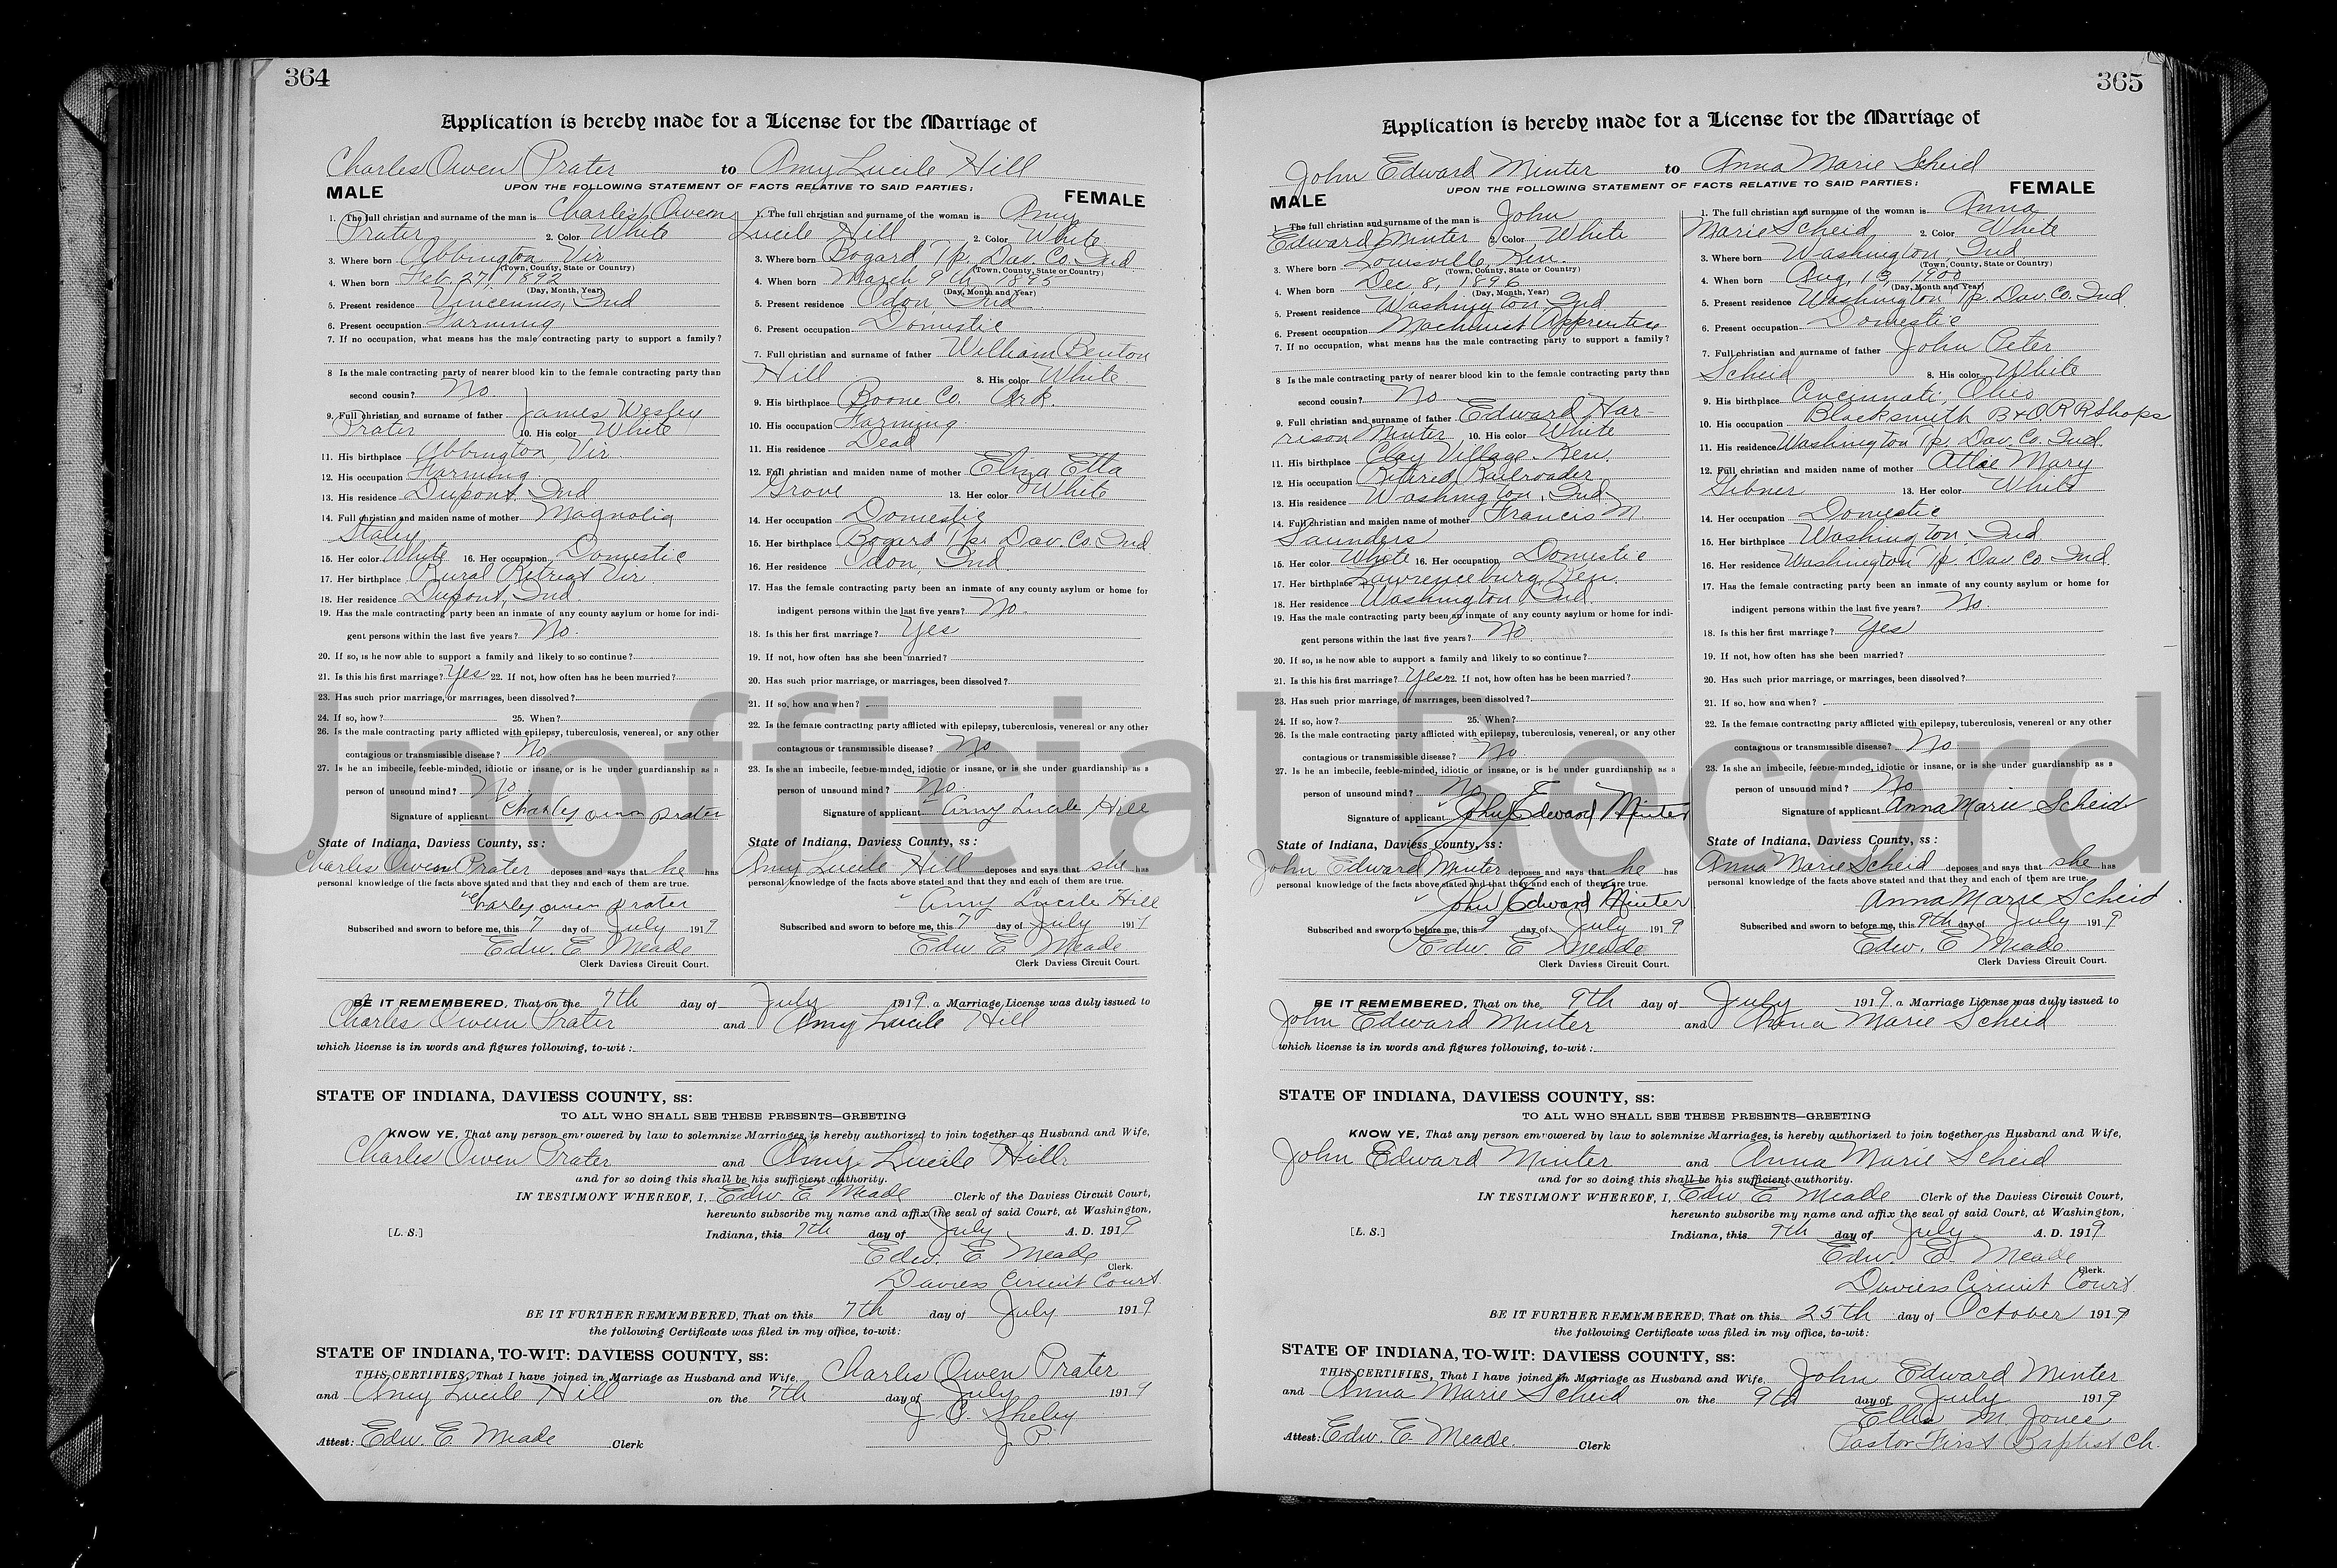 364
Application is hereby made for a License for the Marriage of
Charles Owen Prater to Amy Lucile Hill
UPON THE FOLLOWING STATEMENT OF FACTS RELATIVE TO SAID PARTIES:
MALE
1. The full christian and surname of the man is Charles Owen
Prater 2. Color White
3. Where born Abbington Vir
(Town, County, State or Country)
4. When born Feb. 27, 1892
(Day, Month, Year)
5. Present residence Vincennes, Ind
6. Present occupation Farming
7. If no occupation, what means has the male contracting party to support a family?
8 Is the male contracting party of nearer blood kin to the female contracting party than
second cousin? No.
9. Full christian and surname of father James Wesley
Prater 10. His color White
11. His birthplace Abbington, Vir.
12. His occupation Farming
13. His residence Dupont, Ind
14. Full christian and maiden name of mother Magnolia
Staley
15. Her color White 16. Her occupation Domestic
17. Her birthplace Rural Retreat Vir.
18. Her residence Dupont, Ind.
19. Has the male contracting party been an inmate of any county asylum or home for indi-
gent persons within the last five years? No.
20. If so, is he now able to support a family and likely to so continue?
21. Is this his first marriage? Yes 22. If not, how often has he been married?
23. Has such prior marriage, or marriages, been dissolved?
24. If so, how? 25. When?
26. Is the male contracting party afflicted with epilepsy, tuberculosis, venereal, or any other
contagious or transmissible disease? No
27. Is he an imbecile, feeble-minded, idiotic or insane, or is he under guardianship as a
person of unsound mind? No
Signature of applicant Charley owen prater
State of Indiana, Daviess County, ss:
Charles Owen Prater deposes and says that he has
personal knowledge of the facts above stated and that they and each of them are true.
Charley owen prater
Subscribed and sworn to before me, this 7 day of July 1919
Edw. E Meade
Clerk Daviess Circuit Court.
FEMALE
1. The full christian and surname of the woman is Amy
Lucile Hill 2. Color White
3. Where born Bogard Tp. Dav. Co. Ind
(Town, County, State or Country)
4. When born March 9th, 1895
(Day, Month and Year)
5. Present residence Odon, Ind
6. Present occupation Domestic
7. Full christian and surname of father William Benton
Hill 8. His color White
9. His birthplace Boone Co. Ark.
10. His occupation Farming
11. His residence Dead
12. Full christian and maiden name of mother Elma Etta
Grove 13. Her color White
14. Her occupation Domestic
15. Her birthplace Bogard Tp. Dav. Co. Ind
16. Her residence Odon, Ind.
17. Has the female contracting party been an inmate of any county asylum or home for
indigent persons within the last five years? No.
18. Is this her first marriage? Yes
19. If not, how often has she been married?
20. Has such prior marriage, or marriages, been dissolved?
21. If so, how and when?
22. Is the female contracting party afflicted with epilepsy, tuberculosis, venereal or any other
contagious or transmissible disease? No
23. Is she an imbecile, feeble-minded, idiotic or insane, or is she under guardianship as a
person of unsound mind? No
Signature of applicant Amy Lucile Hill
State of Indiana, Daviess County, ss:
Amy Lucile Hill deposes and says that she has
personal knowledge of the facts above stated and that they and each of them are true.
Amy Lucile Hill
Subscribed and sworn to before me, this 7 day of July 1919
Edw E Meade
Clerk Daviess Circuit Court.
BE IT REMEMBERED, That on the 7th day of July 1919, a Marriage License was duly issued to
Charles Owen Prater and Amy Lucile Hill
which license is in words and figures following, to-wit:
STATE OF INDIANA, DAVIESS COUNTY, ss:
TO ALL WHO SHALL SEE THESE PRESENTS—GREETING
KNOW YE, That any person empowered by law to solemnize Marriages, is hereby authorized to join together as Husband and Wife,
Charles Owen Prater and Amy Lucile Hill
and for so doing this shall be his sufficient authority.
IN TESTIMONY WHEREOF, I, Edw. E Meade Clerk of the Daviess Circuit Court,
hereunto subscribe my name and affix the seal of said Court, at Washington,
[L. S.] Indiana, this 7th day of July A. D. 1919
Edw. E Meade
Clerk.
Daviess Circuit Court
BE IT FURTHER REMEMBERED, That on this 7th day of July 1919
the following Certificate was filed in my office, to-wit:
STATE OF INDIANA, TO-WIT: DAVIESS COUNTY, ss:
THIS CERTIFIES, That I have joined in Marriage as Husband and Wife, Charles Owen Prater
and Amy Lucile Hill on the 7th day of July 1919
J. C. Shelby
J P.
Attest: Edw. E Meade Clerk
365
Application is hereby made for a License for the Marriage of
John Edward Minter to Anna Marie Scheid
UPON THE FOLLOWING STATEMENT OF FACTS RELATIVE TO SAID PARTIES:
MALE
The full christian and surname of the man is John
Edward Minter 2. Color White
3. Where born Louisville, Ken.
(Town, County, State or Country)
4. When born Dec 8, 1896
(Day, Month, Year)
5. Present residence Washington Ind
6. Present occupation Machinist Apprentice
7. If no occupation, what means has the male contracting party to support a family?
8 Is the male contracting party of nearer blood kin to the female contracting party than
second cousin? No
9. Full christian and surname of father Edward Har-
rison Minter 10. His color White
11. His birthplace Clay Village. Ken.
12. His occupation Retired Railroader
13. His residence Washington, Ind
14. Full christian and maiden name of mother Francis M
Saunders
15. Her color White 16. Her occupation Domestic
17. Her birthplace Lawrenceburg, Ken.
18. Her residence Washington, Ind.
19. Has the male contracting party been an inmate of any county asylum or home for indi-
gent persons within the last five years? No
20. If so, is he now able to support a family and likely to so continue?
21. Is this his first marriage? Yes 22. If not, how often has he been married?
23. Has such prior marriage, or marriages, been dissolved?
24. If so, how? 25. When?
26. Is the male contracting party afflicted with epilepsy, tuberculosis, venereal, or any other
contagious or transmissible disease? No
27. Is he an imbecile, feeble-minded, idiotic or insane, or is he under guardianship as a
person of unsound mind? No
Signature of applicant John Edward Minter
State of Indiana, Daviess County, ss:
John Edward Minter deposes and says that he has
personal knowledge of the facts above stated and that they and each of them are true.
John Edward Minter
Subscribed and sworn to before me, this 9 day of July 1919
Edw. E Meade
Clerk Daviess Circuit Court.
FEMALE
1. The full christian and surname of the woman is Anna
Marie Scheid 2. Color White
3. Where born Washington, Ind
(Town, County, State or Country)
4. When born Aug, 13, 1900
(Day, Month and Year)
5. Present residence Washington Tp. Dav. Co. Ind
6. Present occupation Domestic
7. Full christian and surname of father John Peter
Scheid 8. His color White
9. His birthplace Cincinnati, Ohio
10. His occupation Blacksmith B & O R R Shops
11. His residence Washington Tp. Dav. Co. Ind.
12. Full christian and maiden name of mother Mary
13. Her color White
14. Her occupation Domestic
15. Her birthplace Washington, Ind
16. Her residence Washington Tp. Dav Co Ind.
17. Has the female contracting party been an inmate of any county asylum or home for
indigent persons within the last five years? No.
18. Is this her first marriage? Yes
19. If not, how often has she been married?
20. Has such prior marriage, or marriages, been dissolved?
21. If so, how and when?
22. Is the female contracting party afflicted with epilepsy, tuberculosis, venereal or any other
contagious or transmissible disease? No
23. Is she an imbecile, feeble-minded, idiotic or insane, or is she under guardianship as a
person of unsound mind? No
Signature of applicant Anna Marie Scheid
State of Indiana, Daviess County, ss:
Anna Marie Scheid deposes and says that she has
personal knowledge of the facts above stated and that they and each of them are true.
Anna Marie Scheid
Subscribed and sworn to before me, this 9th day of July 1919
Edw. E Meade
Clerk Daviess Circuit Court.
BE IT REMEMBERED, That on the 9th day of July 1919, a Marriage License was duly issued to
John Edward Minter and Anna Marie Scheid
which license is in words and figures following, to-wit:
STATE OF INDIANA, DAVIESS COUNTY, ss:
TO ALL WHO SHALL SEE THESE PRESENTS—GREETING
KNOW YE, That any person empowered by law to solemnize Marriages, is hereby authorized to join together as Husband and Wife,
John Edward Minter and Anna Marie Scheid
and for so doing this shall be his sufficient authority.
IN TESTIMONY WHEREOF, I, Edw E Meade Clerk of the Daviess Circuit Court,
hereunto subscribe my name and affix the seal of said Court, at Washington,
[L. S.] Indiana, this 9th day of July A. D. 1919
Edw. E. Meade
Clerk.
Daviess Circuit Court
BE IT FURTHER REMEMBERED, That on this 25th day of October 1919
the following Certificate was filed in my office, to-wit:
STATE OF INDIANA, TO-WIT: DAVIESS COUNTY, ss:
THIS CERTIFIES, That I have joined in Marriage as Husband and Wife, John Edward Minter
and Anna Marie Scheid on the 9th day of July 1919
Ellis M. Jones
Pastor First Baptist Ch.
Attest: Edw. E. Meade. Clerk
Unofficial Record